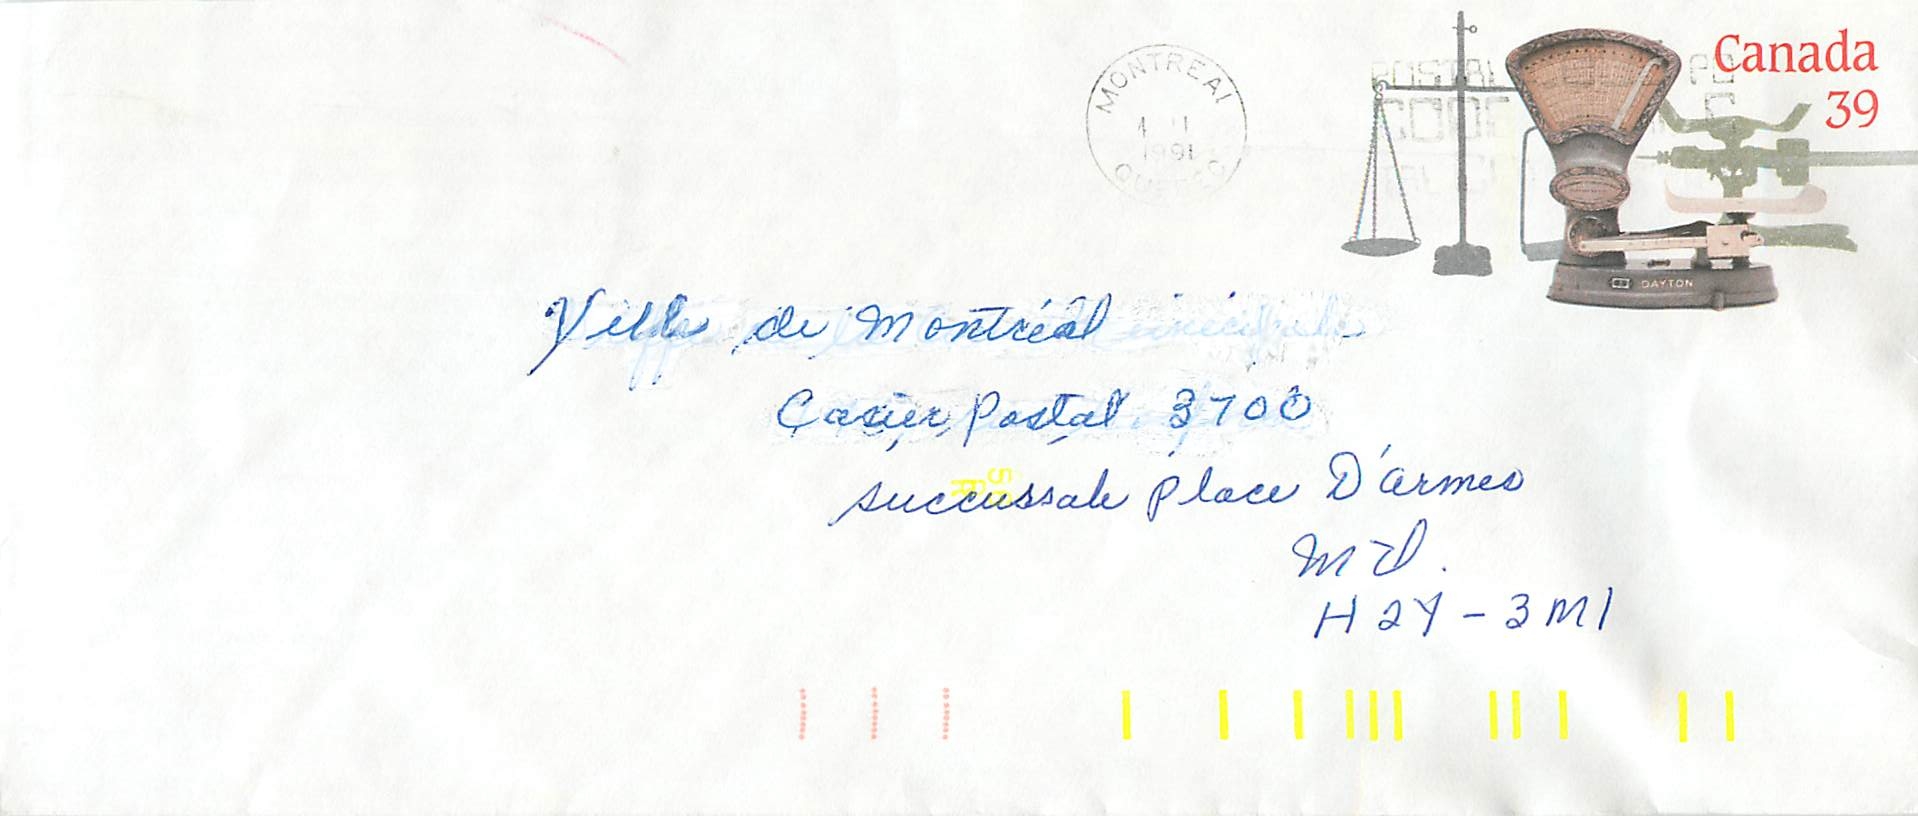 Canada
39
MONTREAL
1991
QUEBEC
POSTAL
CODE
DAYTON
Ville de Montréal
Casier Postal 3700
succussale place D'armes
Mtl.
H2Y-3M1